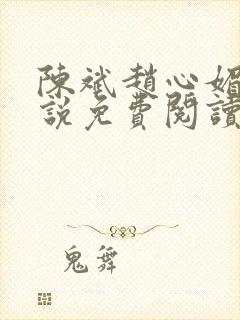 陳斌趙心媚
說免費閱讀
鬼舞